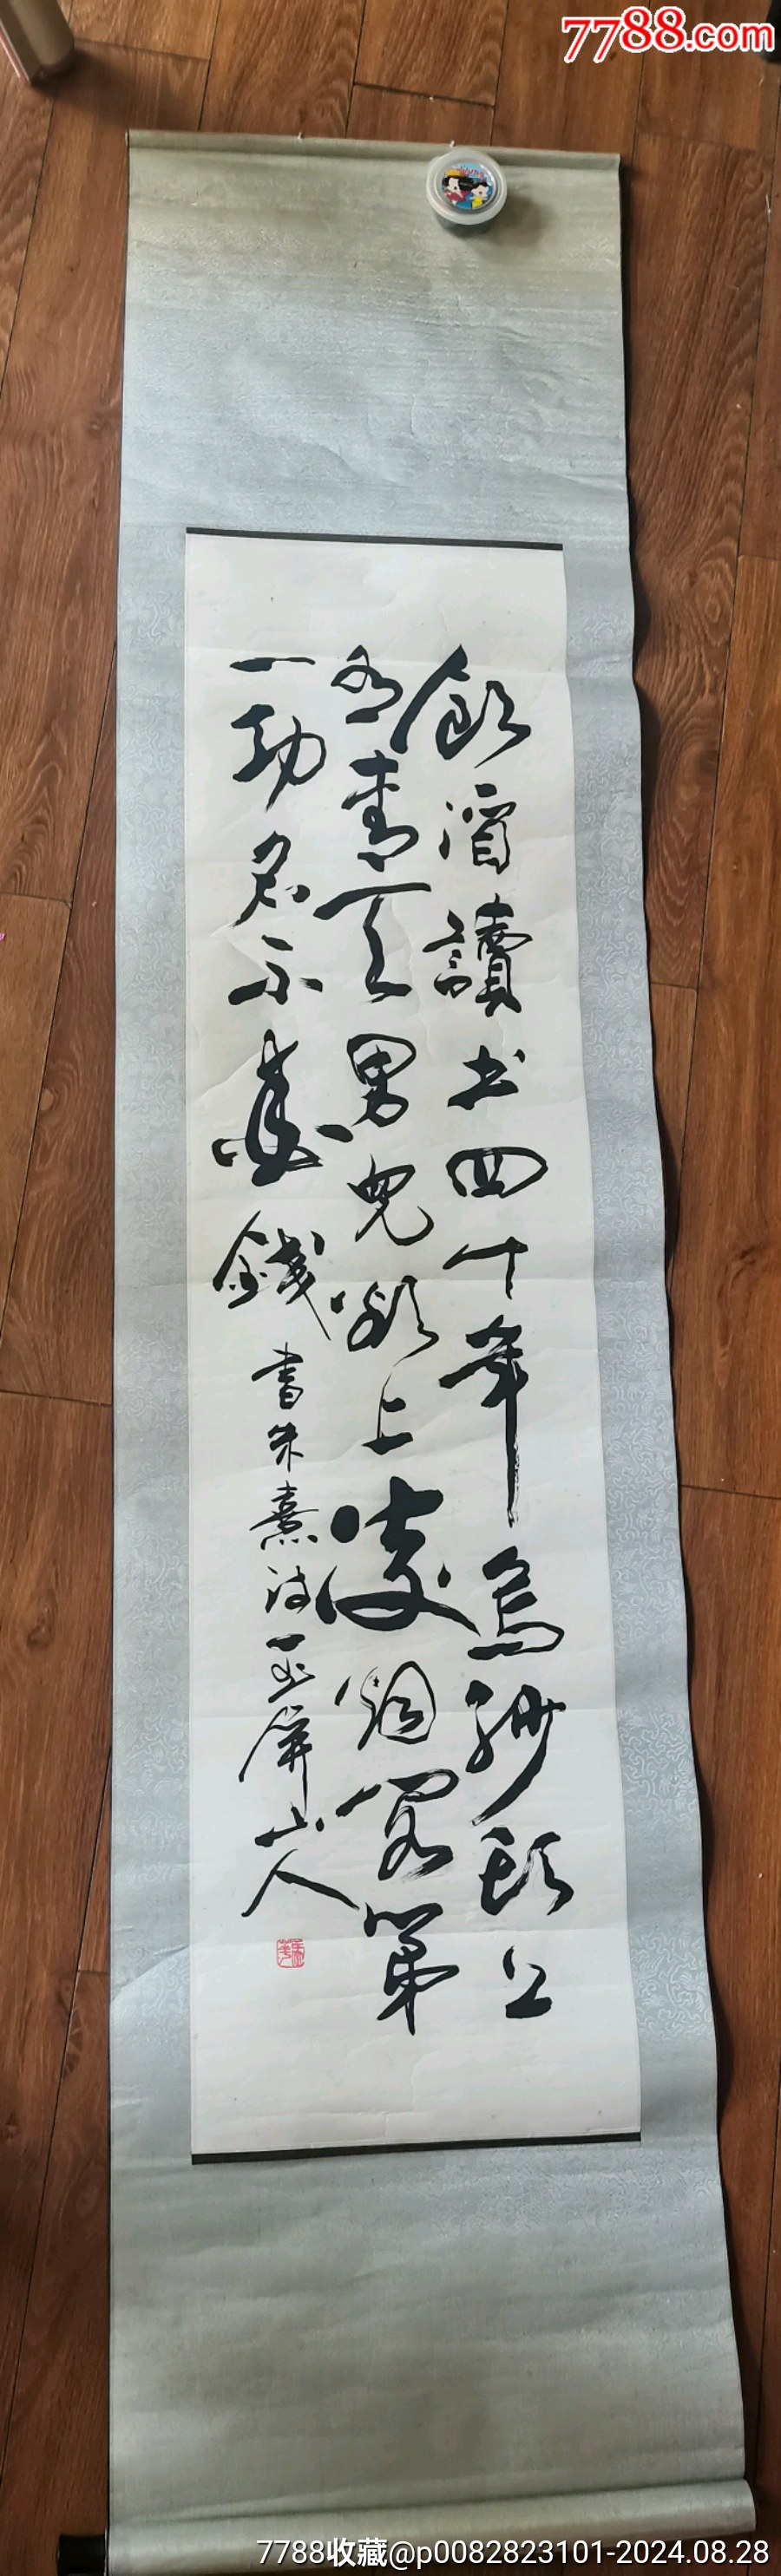 7788.com
飲酒讀书四十年烏紗頭上
有青天男兒欲上凌烟閣第
一功名不愛錢
書朱熹诗玉屏山人
7788收藏@p0082823101-2024.08.28